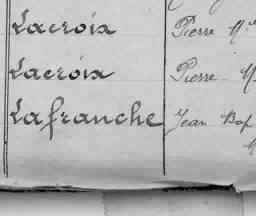 Lacroix Pierre M
Lacroix Pierre M
Lafranche Jean Bap